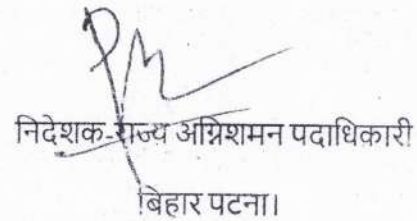 निदेशक-राज्य अग्निशमन पदाधिकारी
बिहार पटना।